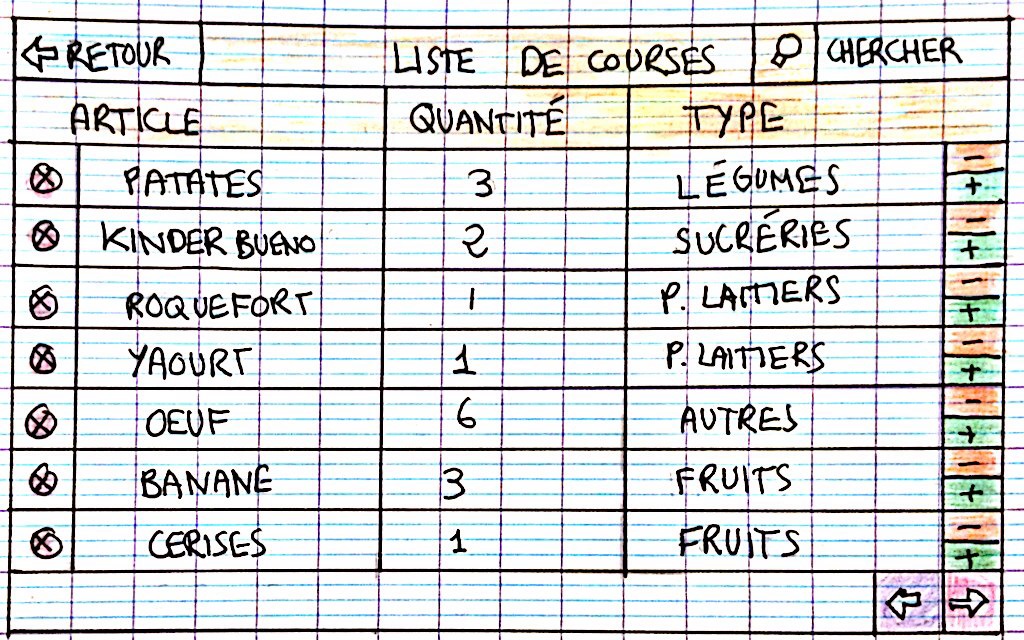 RETOUR LISTE DE COURSES CHERCHER
ARTICLE QUANTITÉ TYPE
PATATES 3 LÉGUMES - +
KINDER BUENO 2 SUCRÉRIES - +
ROQUEFORT 1 P. LAITIERS - +
YAOURT 1 P. LAITIERS - +
OEUF 6 AUTRES - +
BANANE 3 FRUITS - +
CERISES 1 FRUITS - +